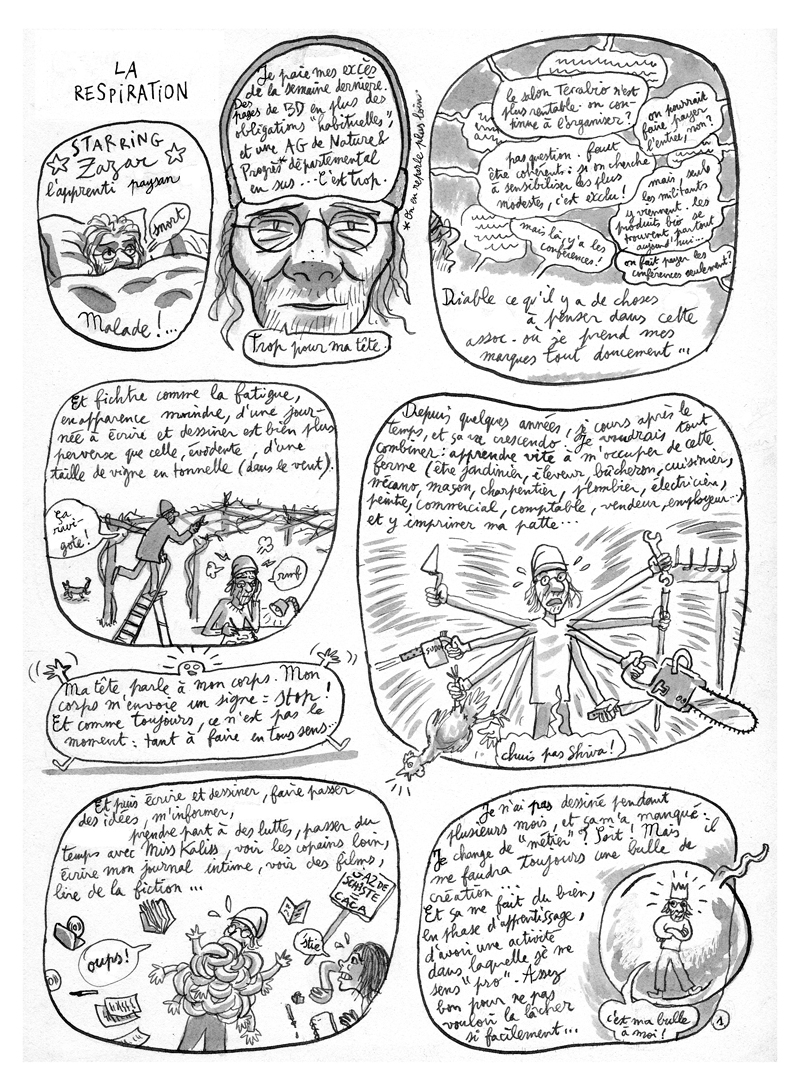 LA
RESPIRATION
STARRING
Zazar
l'apprenti paysan
snort
Malade !...
Je paie mes excès
de la semaine dernière.
Des pages de BD en plus des
obligations "habituelles"
et une AG de Nature &
Progrès* départemental
en sus... C'est trop.
* On en reparle plus loin
Trop pour ma tête.
le salon Terrabio n'est
plus rentable. on con-
tinue à l'organiser ?
on pourrait
faire payer
l'entrée, non ?
pas question. faut
être cohérents : si on cherche
à sensibiliser les plus
modestes, c'est exclu !
mais, seuls
les militants
y viennent. les
produits bio se
trouvent partout
aujourd'hui...
mais là y'a les
conférences !
on fait payer les
conférences seulement ?
Diable ce qu'il y a de choses
à penser dans cette
assoc. où je prend mes
marques tout doucement ...
Et fichtre comme la fatigue,
en apparence moindre, d'une jour-
née à écrire et dessiner est bien plus
perverse que celle, évidente, d'une
taille de vigne en tonnelle (dans le vent).
ça
ravi-
gote !
Depuis quelques années, je cours après le
temps, et ça va crescendo. Je voudrais tout
combiner : apprendre vite à m'occuper de cette
ferme (être jardinier, éleveur, bûcheron, cuisinier,
mécano, maçon, charpentier, plombier, électricien,
peintre, commercial, comptable, vendeur, employeur...)
et y imprimer ma patte...
chuis pas Shiva !
Ma tête, parle à mon corps. Mon
corps m'envoie un signe = stop !
Et comme toujours, ce n'est pas le
moment : tant à faire en tous sens...
Et puis écrire et dessiner, faire passer
des idées, m'informer,
prendre part à des luttes, passer du
temps avec Miss Kaliss, voir les copains loin,
écrire mon journal intime, voir des films,
lire de la fiction ...
GAZ DE
SCHISTE
=
CACA
oups !
Je n'ai pas dessiné pendant
plusieurs mois, et ça m'a manqué.
Je change de "métier" ? Soit ! Mais il
me faudra toujours une bulle de
création ...
Et ça me fait du bien,
en phase d'apprentissage,
d'avoir une activité
dans laquelle je me
sens "pro". Assez
bon pour ne pas
vouloir la lâcher
si facilement...
c'est ma bulle
à moi !
1